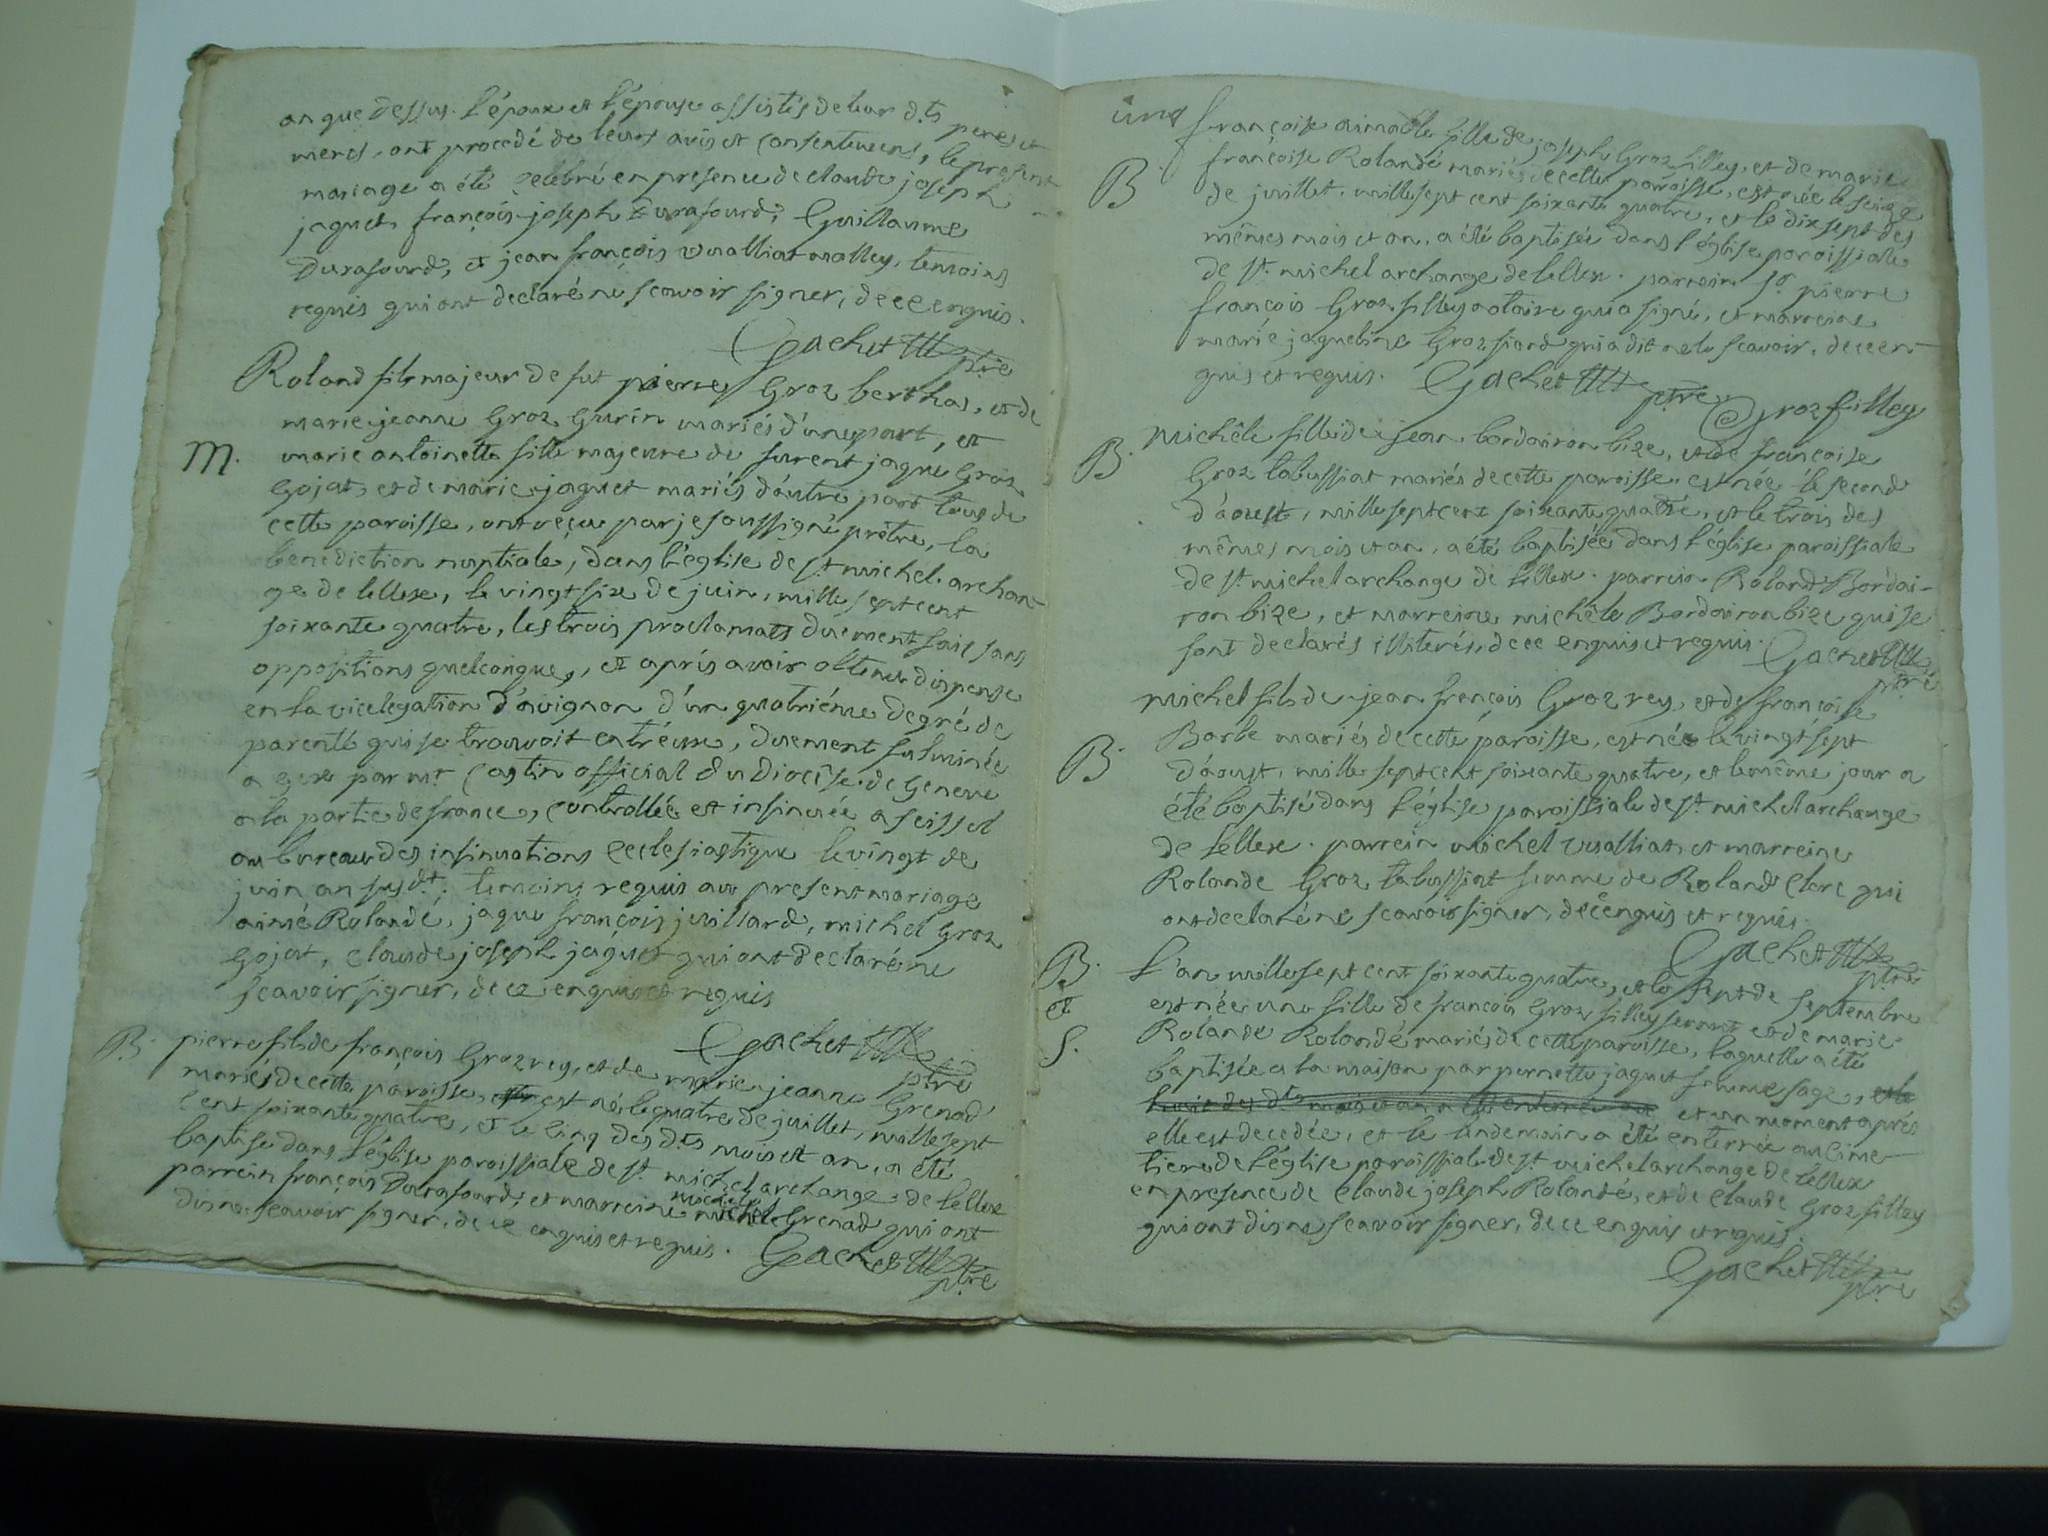 an que dessus. l'époux et l'épouse assistés de leur d.ts peres et
meres, ont procedé de leurs avis et consentemens, le present
mariage a été celebré en presence de claude joseph
jaquet, françois joseph Durafourd, Guillaume
Durafourd, et jean françois vualliat malley, temoins
requis qui ont declaré ne scavoir signer, de ce enquis.
Gachet ptre
Roland fils majeur de fut pierre Groz berthas, et de
marie jeanne Groz Gurin mariés d'une part, et
M.
marie antoinette fille majeure de furent jaque Groz
Gojat, et de marie jaquet mariés d'autre part tous de
cette paroisse, ont reçu par je soussigné prêtre, la
benediction nuptiale, dans l'église de st michel archan-
ge de lellex, le vingt six de juin, mille sept cent
soixante quatre, les trois proclamats düement fais sans
oppositions quelconque, et après avoir obtenu dispense
en la vicelegation d'avignon d'un quatriéme degré de
parenté qui se trouvoit entr'eux, duement fulminée
a gex par mr Castin official du Diocése de Geneve
a la partie de france, controllée et insinuée a seissel
au bureau des insinuations ecclesiastique le vingt de
juin an susd.t. temoins requis au present mariage
aimé Rolandé, jaque françois juillard, michel Groz
Gojat, claude joseph jaquet qui ont declaré ne
scavoir signer, de ce enquis et requis
Gachet ptre
B.
pierre fils de françois Groz rey, et de marie jeanne Grenad
mariés de cette paroisse, est né le quatre de juillet, mille sept
cent soixante quatre, et le cinq des d.ts mois et an, a été
baptisé dans l'église paroissiale de st michel archange de Lellex
parrein françois Durafourd, et marreine michele Grenad qui ont
dis ne scavoir signer, de ce enquis et requis.
Gachet ptre
françoise aimable fille de joseph Groz filley, et de marie
B.
françoise Rolandé mariés de cette paroisse, est née le seize
de juillet, mille sept cent soixante quatre, et le dix sept des
mêmes mois et an, a été baptisée dans l'église paroissiale
de st. michel archange de lellex. parrein sr. pierre
françois Groz filley notaire qui a signé, et marreine
marie jaqueline Groz fiard qui a dit ne le scavoir, de ce en-
quis et requis. Gachet ptre
Groz filley
B.
Michéle fille de jean bordairon bize, et de françoise
Groz tabussiat mariés de cette paroisse est née le second
d'aoust, mille sept cent soixante quatre, et le trois des
mêmes mois et an, a été baptisée dans l'église paroissiale
de st. michel archange de lellex. parrein Roland Bordai-
ron bize, et marreine michéle Bordairon bize qui se
sont declarés illiterés, de ce enquis et requis.
Gachet ptre
Michel fils de jean françois Groz rey, et de françoise
B.
Barbe mariés de cette paroisse, est né le vingt sept
d'aoust, mille sept cent soixante quatre, et le même jour a
été baptisé dans l'église paroissiale de st. michel archange
de Lellex. parrein michel vualliat, et marreine
Rolande Groz tabussiat femme de Roland Clerc qui
ont declaré ne scavoir signer, de ce enquis et requis.
Gachet ptre
B.
et
S.
L'an mille sept cent soixante quatre, et le sept de septembre
est née une fille de françois Groz filley et de marie
Rolande Rolandé mariés de cette paroisse, laquelle a été
baptisée a la maison par pernette jaquet femme sage,
et un moment après
elle est decedée, et le lendemain a été enterrée au cime-
tiere de l'église paroissiale de st. michel archange de Lellex
en presence de Claude joseph Rolandé, et de Claude Groz filley
qui ont dis ne scavoir signer, de ce enquis et requis.
Gachet ptre